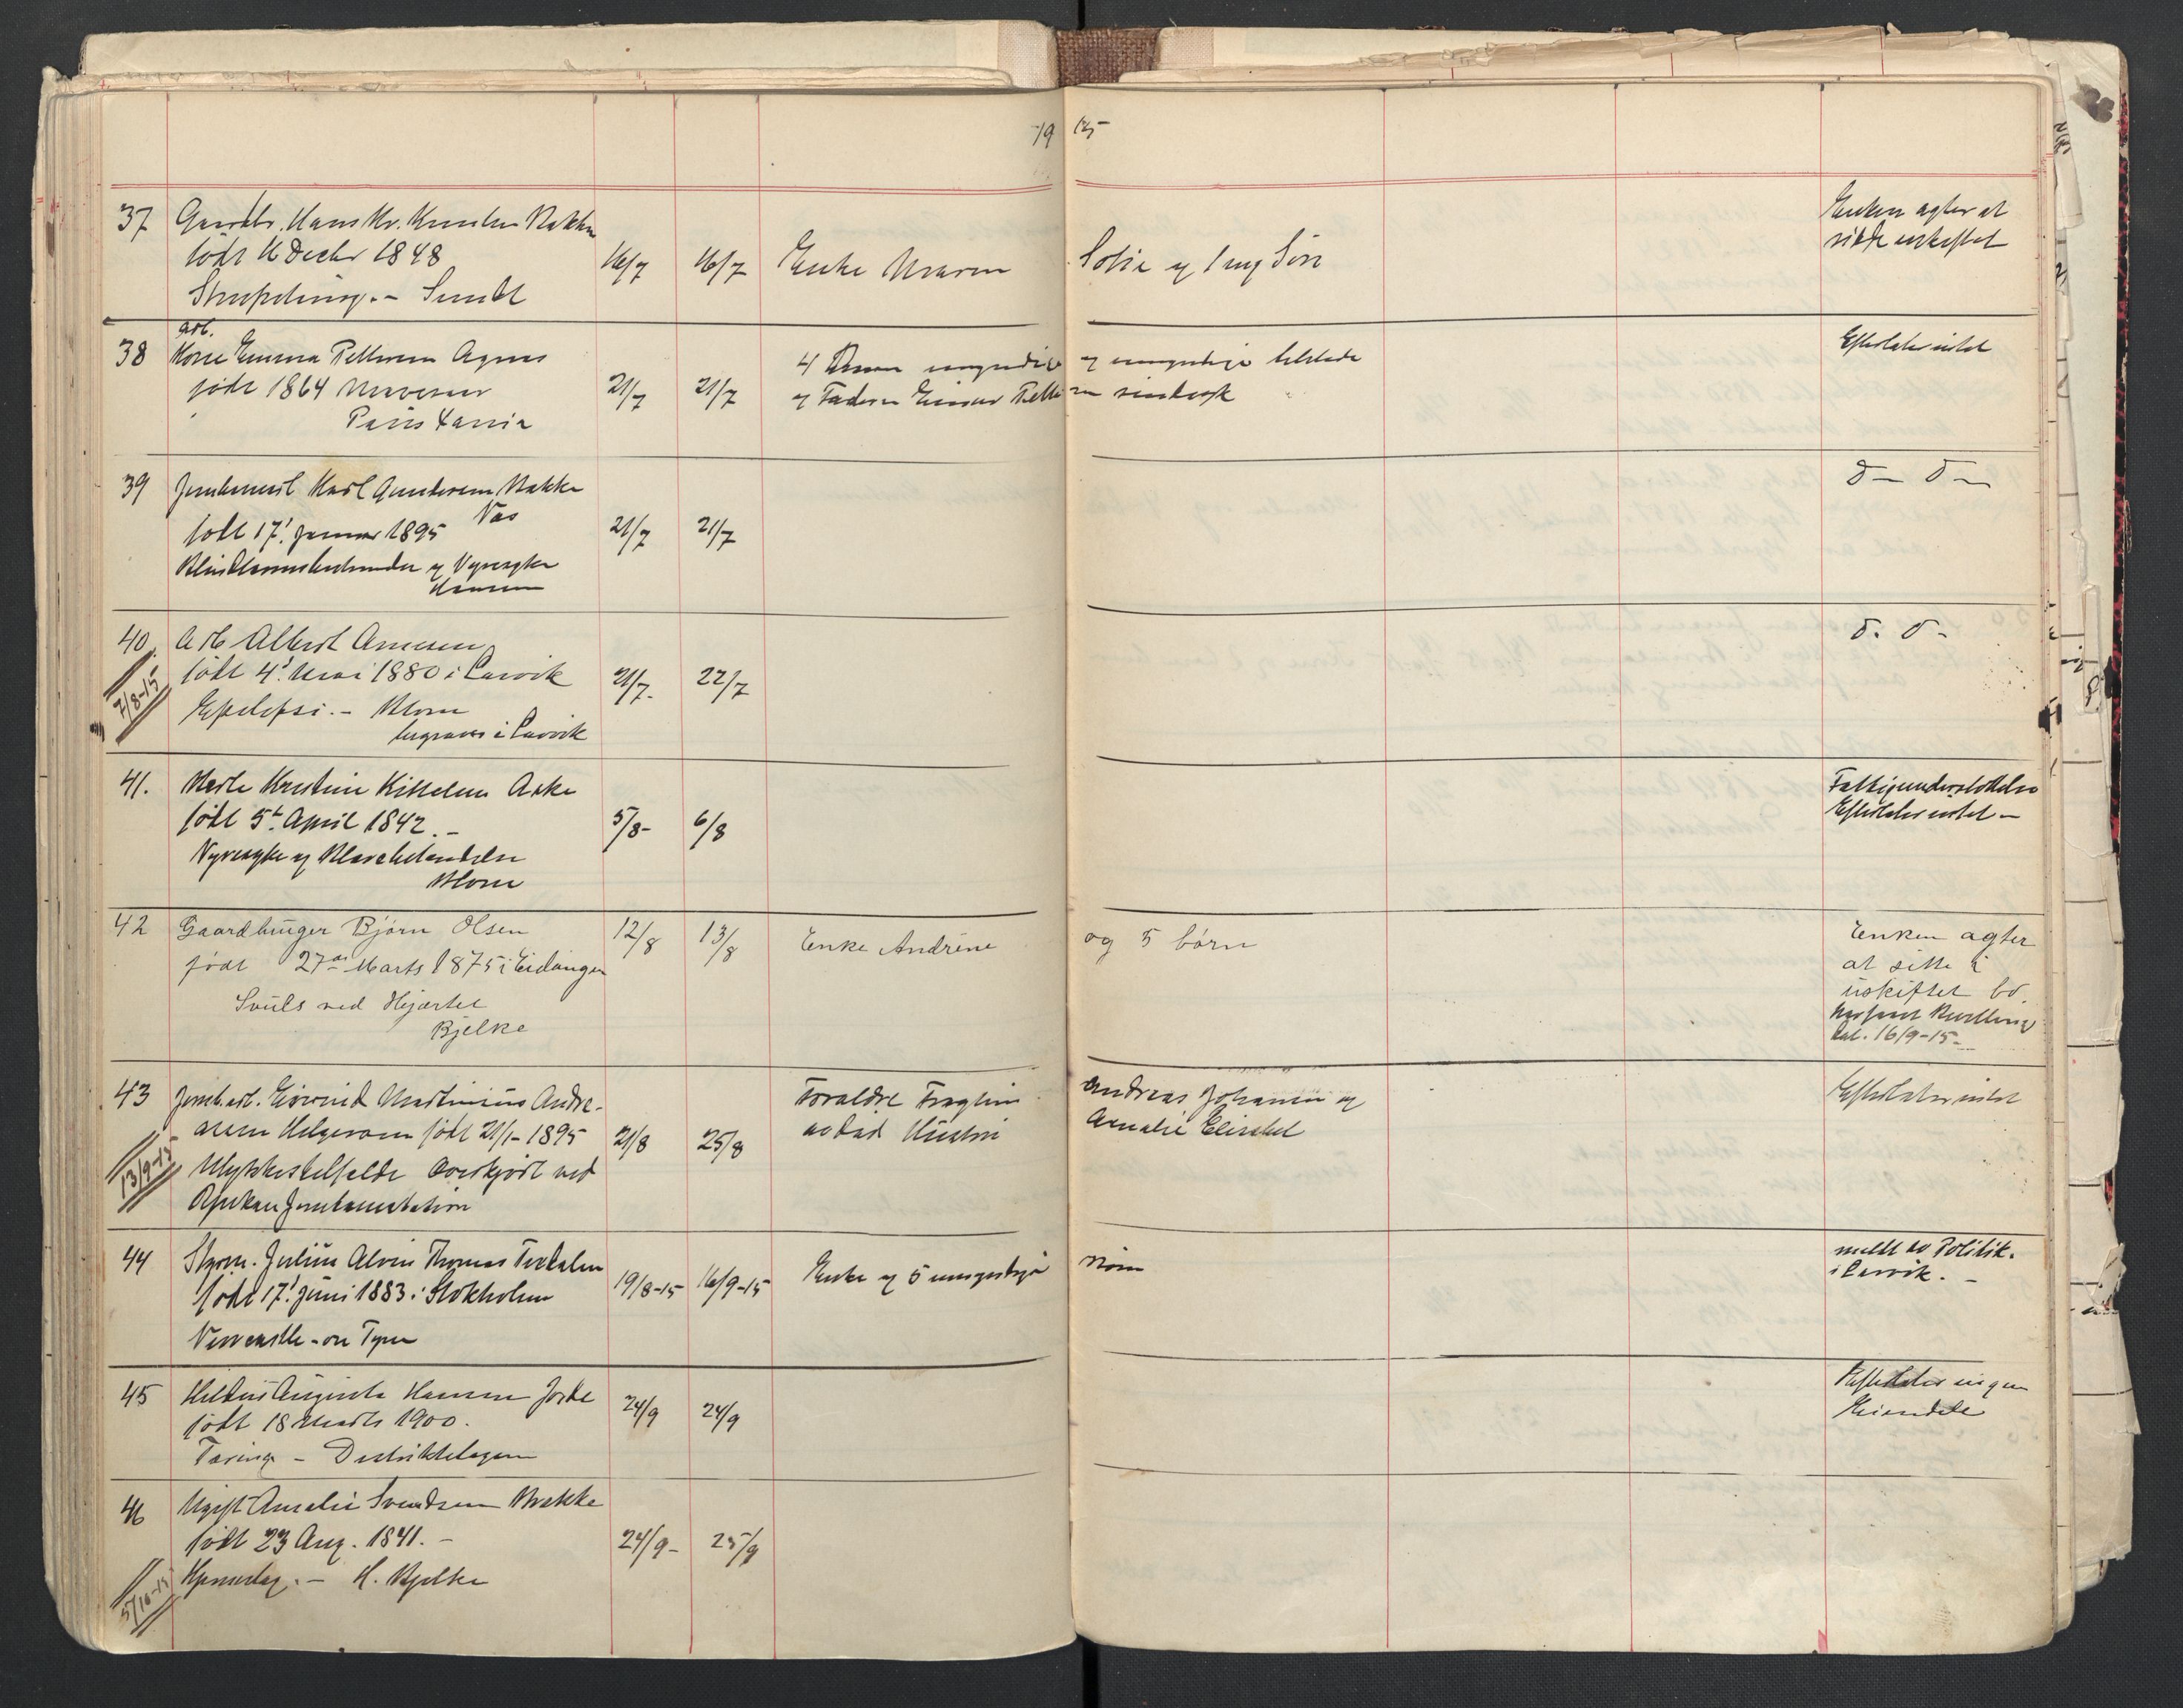 19 15
37 Gaardbr. Hans Kr. Knudsen Nakken
født 16 Decbr 1848
16/7 16/7 Enke Maren Sofie og 1 myg Søn
Strupehug. - Sundt
Enken agter at
sidde uskiftet
38 arb.
Kone Emma Pettersen Agnes
født 1864
21/7 21/7
4 Børn myndige og umyndige tilstede
og Faderen Einar Pettersen
Efterlater intet
39 Jernbanearb Karl Gundersen Nakke
født 17' Januar 1895
21/7 21/7
Blindtarmsbetændelse og Nyresyke
Hansen
d- d-
40. Arb Albert Arnesen
født 4' Mai 1880 i Larvik
21/7. 22/7
7/8-15
Epilepsi. - Horn
begraves i Larvik
d. d-
41. Marte Kristine Kittelsen Aske
født 5t April 1842. -
5/8- 6/8
Nyresyke og Blærebetændelse
Horn
Fattigunderstøttelse
Efterlater intet -
42 Gaardbruger Bjørn Olsen
født 27de Marts 1875 i Eidanger
12/8 13/8 Enke Andrine og 5 børn
Svuls ved Hjærtet
Bjelke
Enken agter
at sitte i
uskiftet bo.
dat. 16/9-15-
43 Jernb.arb. Eivind Martinius Andre-
asen Helgeroen født 21/1-1895
21/8 25/8
13/9-15
Ulykkestilfælde Overkjørt ved
Jernbanestation
Forældre Andreas Johansen og
Hustru Amalie Elisabet
Efterlater intet
44 Styrm. Julius Alvin Thomas Tvedalen
født 17' Juni 1883 i Stokholm
19/8-15 16/9-15 Enke og 5 umyndige Børn
Newcastle-on Tyne
meldt av Politik.
i Larvik. -
45 Augusta Hansen
født 18 Marts 1900.
24/9 24/9
Tæring - Distriktslægen
Efterlater ingen
Eiendele
46 Ugift Amalie Svendsen Nakke
født 23 Aug. 1841. -
24/9- 25/9
5/10-15
Hjerneslag. - H. Bjelke